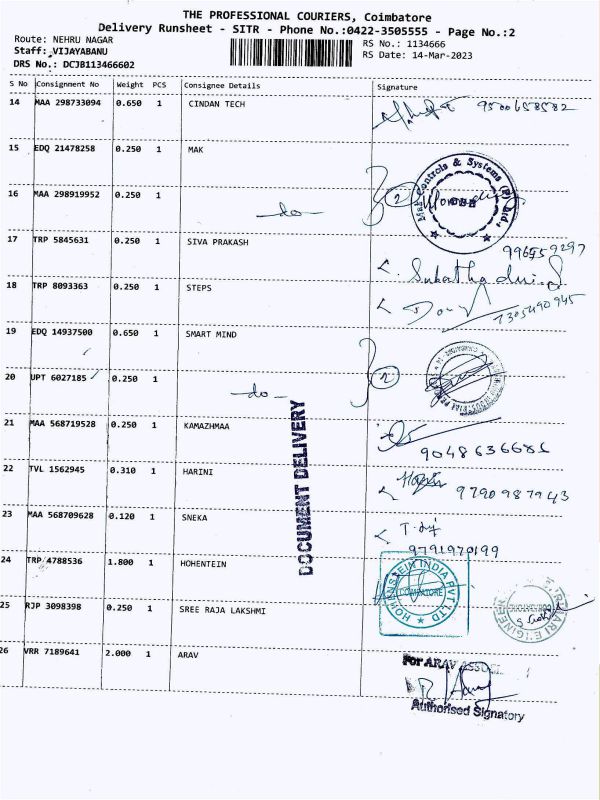 THE PROFESSIONAL COURIERS, Coimbatore
Delivery Runsheet - SITR - Phone No.:0422-3505555 - Page No.:2
Route: NEHRU NAGAR
Staff: VIJAYABANU
DRS No.: DCJB113466602
RS No.: 1134666
RS Date: 14-Mar-2023
S No Consignment No Weight PCS Consignee Details Signature
14 MAA 298733094 0.650 1 CINDAN TECH 9500658582
15 EDQ 21478258 0.250 1 MAK
Mak Controls & Systems (P) Ltd.,
16 MAA 298919952 0.250 1 -do- 2
17 TRP 5845631 0.250 1 SIVA PRAKASH
18 TRP 8093363 0.250 1 STEPS 7305490945
19 EDQ 14937500 0.650 1 SMART MIND
20 UPT 6027185 0.250 1 -do- 2
21 MAA 568719528 0.250 1 KAMAZHMAA 9048636686
22 TVL 1562945 0.310 1 HARINI 9790987943
23 MAA 568709628 0.120 1 SNEKA 9791970199
DOCUMENT DELIVERY
24 TRP 4788536 1.800 1 HOHENTEIN
HOHENSTEIN INDIA PVT LTD
COIMBATORE
25 RJP 3098398 0.250 1 SREE RAJA LAKSHMI
26 VRR 7189641 2.000 1 ARAV
For ARAV
Authorised Signatory